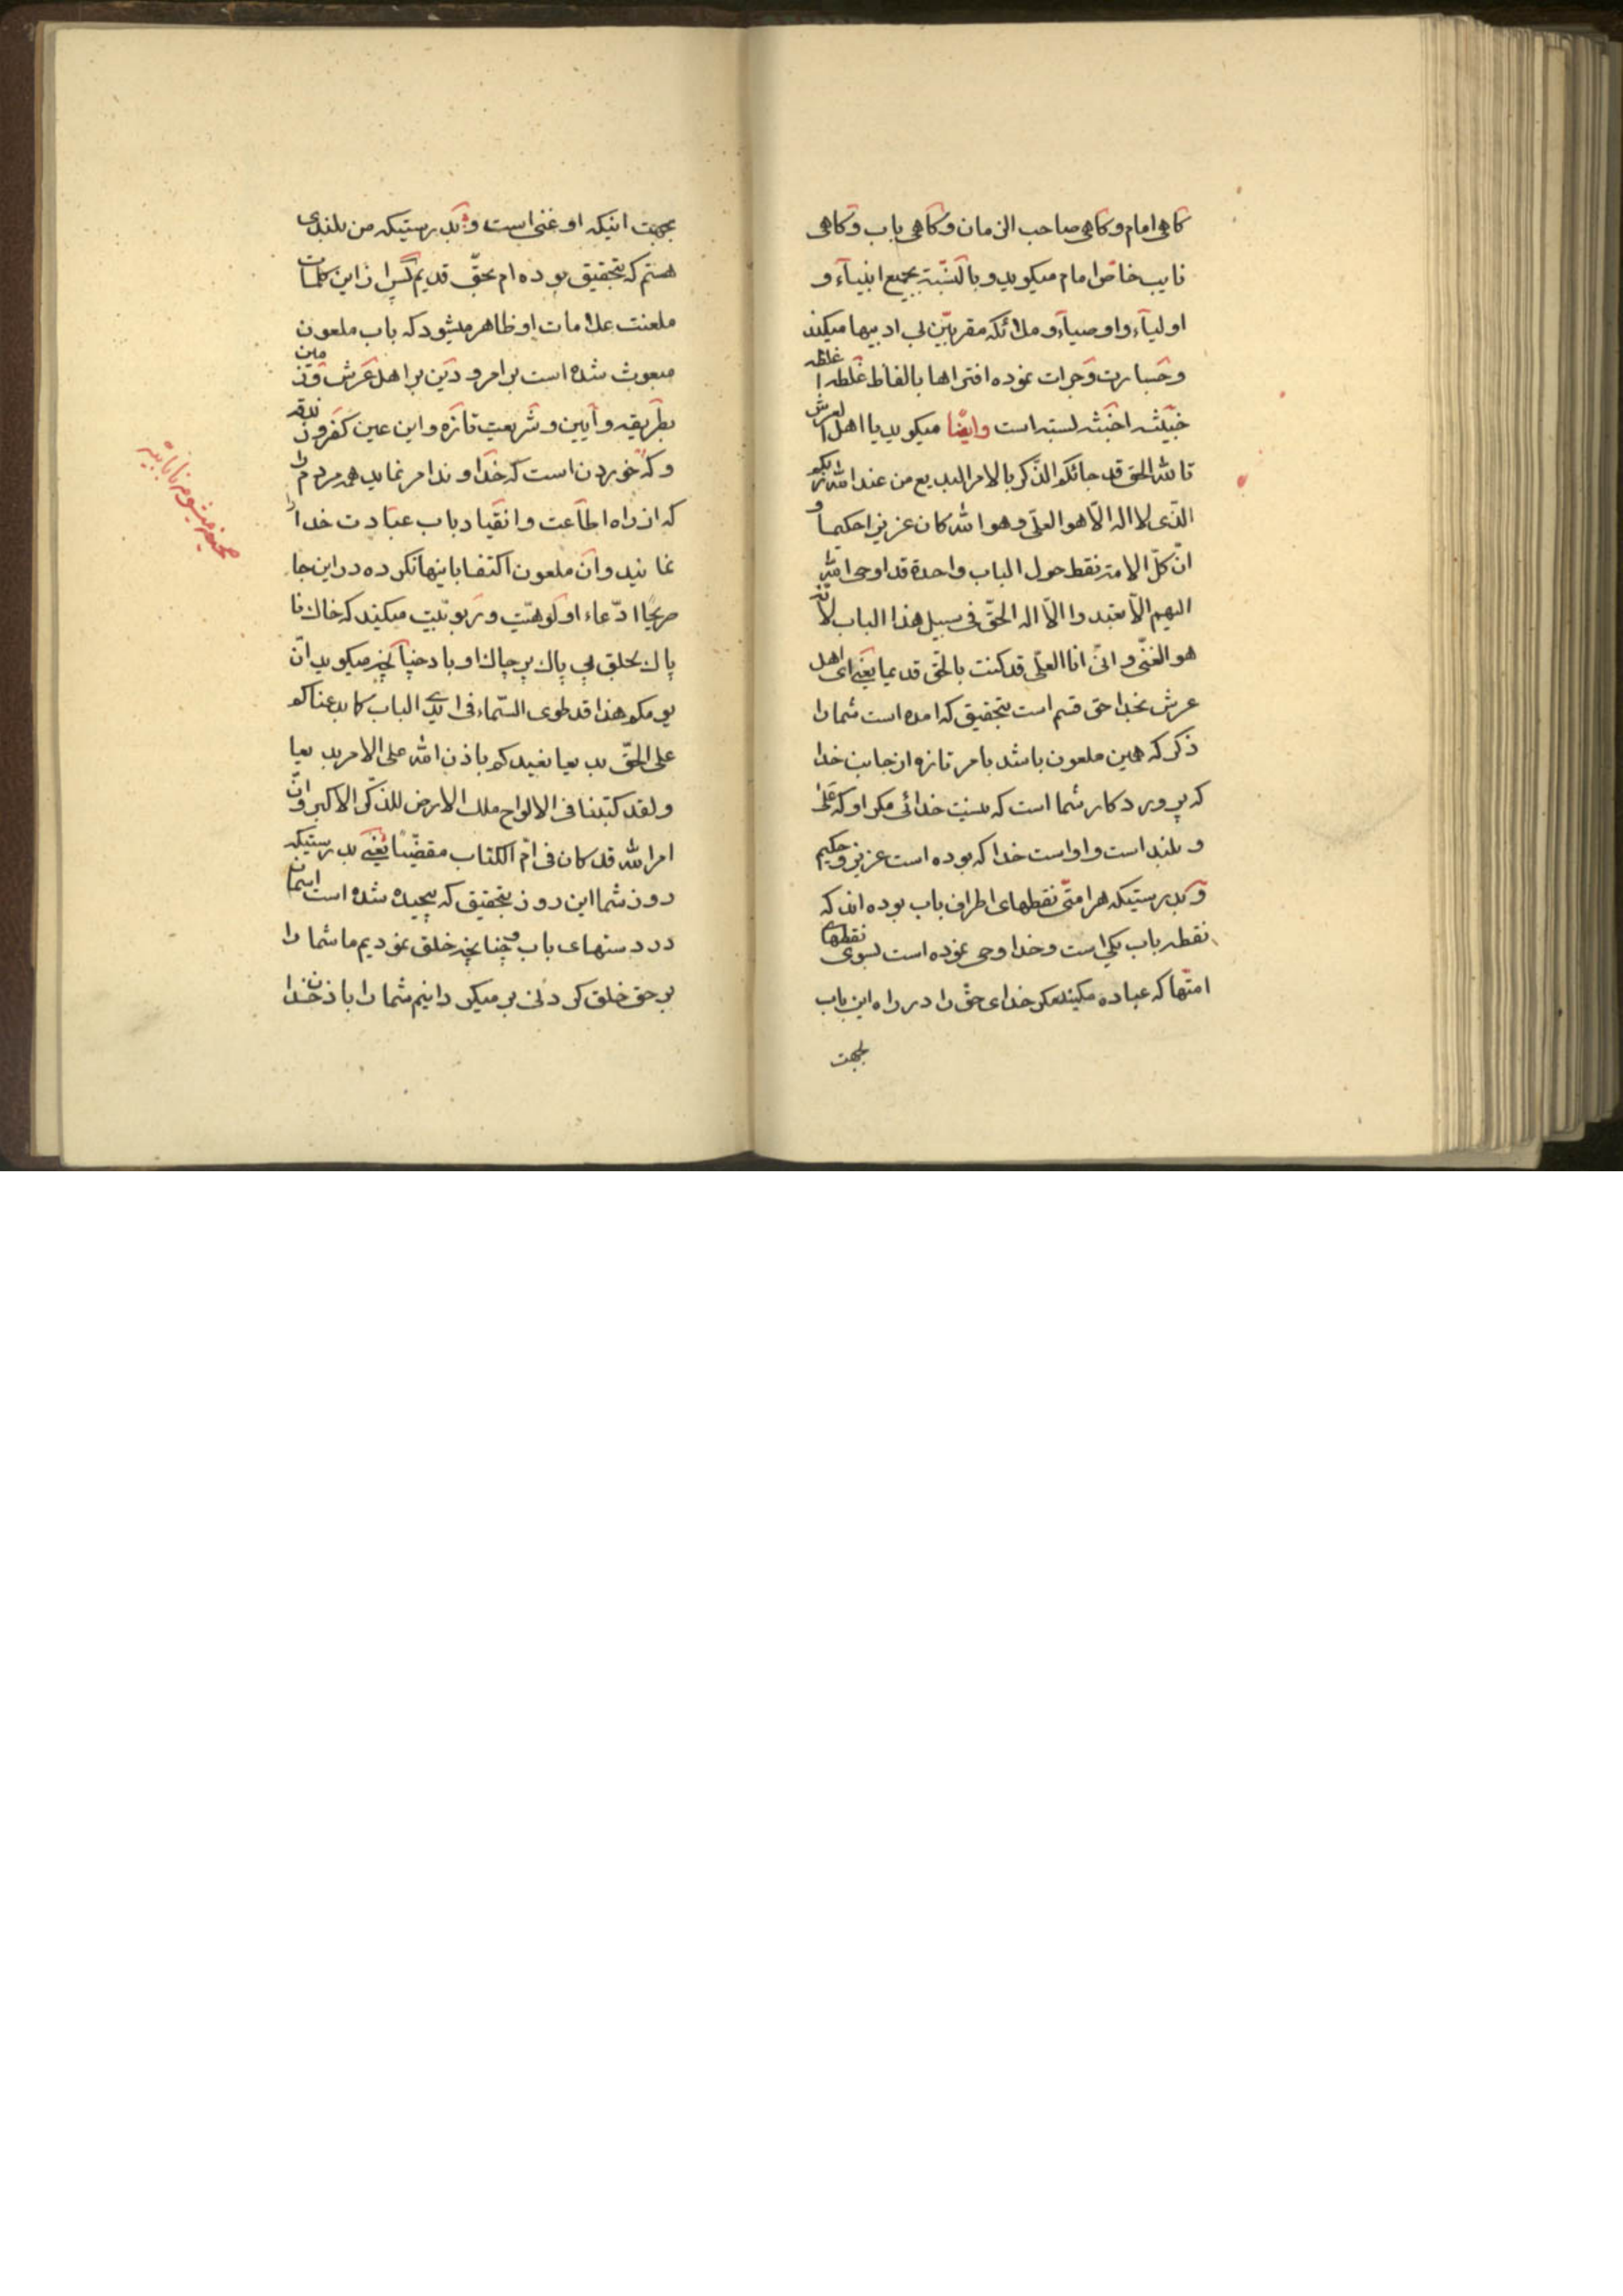 کاهی امام و کاهی صاحب الزمان و کاهی باب و کاهی
نایب خاص امام میکوید و بالنّسبة بجمیع انبیآء و
اولیآء و اوصیآء و ملائکه مقرّبین بی ادبیها میکند
و جسارت و جرات نموده افتراها بالفاظ غلطه
خبیثه اخبثه بسته است وایضا میکوید یا اهل العرش
تالله الحق قد جائکم الذّکر بالامر البدیع من عند الله ربکم
الذی لا اله الّا هو العلی و هو الله کان عزیزا حکیما و
انّ کلّ الامة نقط حول الباب واحدة قد اوحی الله
الیهم الّا تعبدوا الّا اله الحقّ فی سبیل هذا الباب لانّه
هو الغنّی و انّی انا العلّی قد کنت بالحّق قدیما یعنی ای اهل
عرش بخدا حق قسم است بتحقیق که امده است شما را
ذکر که همین ملعون باشد بامر تازه از جانب خدا
که پروردکار شما است که نیست خدائی مکر او که علی
و بلند است و او است خدا که بوده است عزیز و حکیم
و بدرستیکه هر امتّی نقطهای اطراف باب بوده اند که
نقطه باب یکی است و خدا وحی نموده است بسوی نقطهای
امتّها که عباده میکنند مکر خدای حق را در راه این باب
بجهت
بجهت اینکه او غنی است و بدرستیکه من بلندی
هستم که بتحقیق بوده ام بحقّ قدیم پس از این کلمات
ملعنت علامات او ظاهر میشود که باب ملعون
مبعوث شده است بر امر و دین بر اهل عرش و زمین
بطریقه و آیین و شریعت تازه و این عین کفر و زندقه
و که خوردن است که خداوند امر نماید همه مردم را
که از راه اطاعت و انقیاد باب عبادت خدا را
نمانید و آن ملعون اکتفا باینها نکرده در این جا
صریحا ادّعاء اولوهیّت و ربوبیّت میکند که خاک نا
پاک بحلق بی پاک پر چاک او باد چنانچه میکوید انّ
یومکم هذا قد طوی السّماء فی ایدی الباب کما بدعناکم
علی الحقّ بدیعا نعیدکم باذن الله علی الامر بدیعا
و لقد کتبنا فی الالواح ملک الارض للذّکر الاکبر و انّ
امر الله قد کان فی امّ الکتاب مقضّیا یعنی بدرستیکه
روز شما این روز بتحقیق که پیچیده شده است اسمان
در دستهای باب چنانچه خلق نمودیم ما شما را
بر حق خلق کردنی بر میکردانیم شما را باذن خدا